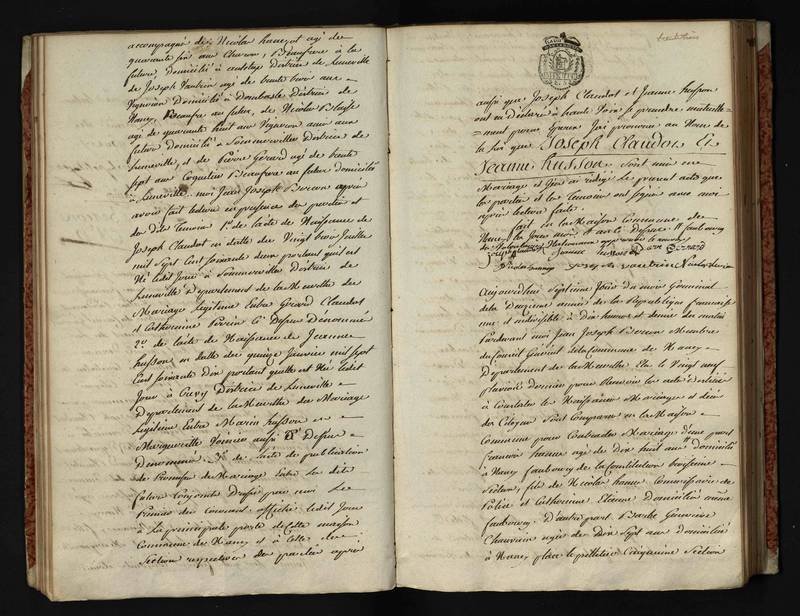 accompagné de Nicolas
quarante six ans Charon Beaufrere à la
future Domicilié à District de Luneville
de Joseph Vautrin agé de trente trois ans
Vigneron Domicilié à Dombasle District de
Nancy, Beaufrere au futur, de Nicolas
agé de quarante huit ans Vigneron ami aux
futurs Domicilié à Sommerviller District de
Luneville, et de Pierre Gérard agé de trente
sept ans Coquetier Beaufrere au futur domicilié
à Luneville. moi Jean Joseph après
avoir fait lecture en presence des parties et
des dits Temoins 1° de l'acte de Naissance de
Joseph Claudot en datte du Vingt trois Juillet
mil sept Cent soixante deux portant qu'il est
Né ledit Jour à Sommerviller District de
Luneville Departement de la Meurthe du
Mariage Legitime Entre Gérard Claudot
et Catherinne Perrin Ci Dessus Dénommé
2° de l'acte de Naissance de Jeanne
husson en datte du quinze Janvier mil sept
Cent soixante Dix portant quelle est Née ledit
Jour à District de Luneville
Departement de la Meurthe du Mariage
Legitime Entre husson et
Margueritte aussi Dessus
Denommé 3° de l'acte de publication
de Promesse de Mariage Entre les dits
futurs Conjoints Dressé par moi Le
du Courant affiché ledit Jour
à La principale porte de Cette maison
Commune de Nancy et à Celle des
Section respective des parties après
aussi que Joseph Claudot et Jeanne husson
ont eu déclaré à haute Voix se prendre mutuelle=
=ment pour Epoux J'ai prononcé au Nom de
la Loi que Joseph Claudot Et
Jeanne husson Sont unis en
Mariage et J'en ai rédigé le present acte que
les parties et les Temoins ont signé avec moi
après lecture faite.
fait en la Maison Commune de
Nancy les Jours mois et an ci Dessus
Jeanne husson Pierre Gérard
Joseph vautrin Nicolas
Aujourdhui Septieme Jour du mois Germinal
de la Deuxieme année de la Republique francaise
une et indivisible à Dix heures et demie du matin
Pardevant moi Jean Joseph Membre
du Conseil Général de la Commune de Nancy
Departement de la Meurthe Elu le Vingt neuf
pluviose dernier pour Recevoir les actes Destinés
à Constater les Naissances Mariages et décès
des Citoyens Sont Comparus en la Maison
Commune pour Contracter Mariage d'une part
francois agé de Dix huit ans domicilié
à Nancy faubourg de la Constitution
Section, fils de Nicolas Commissaire de
Police et Catherinne Etienne Domiciliés même
faubourg, D'autre part Barbe Genevieve
Chauvain agée de Dix Sept ans Domiciliée
à Nancy place le pelletier Cinquieme Section